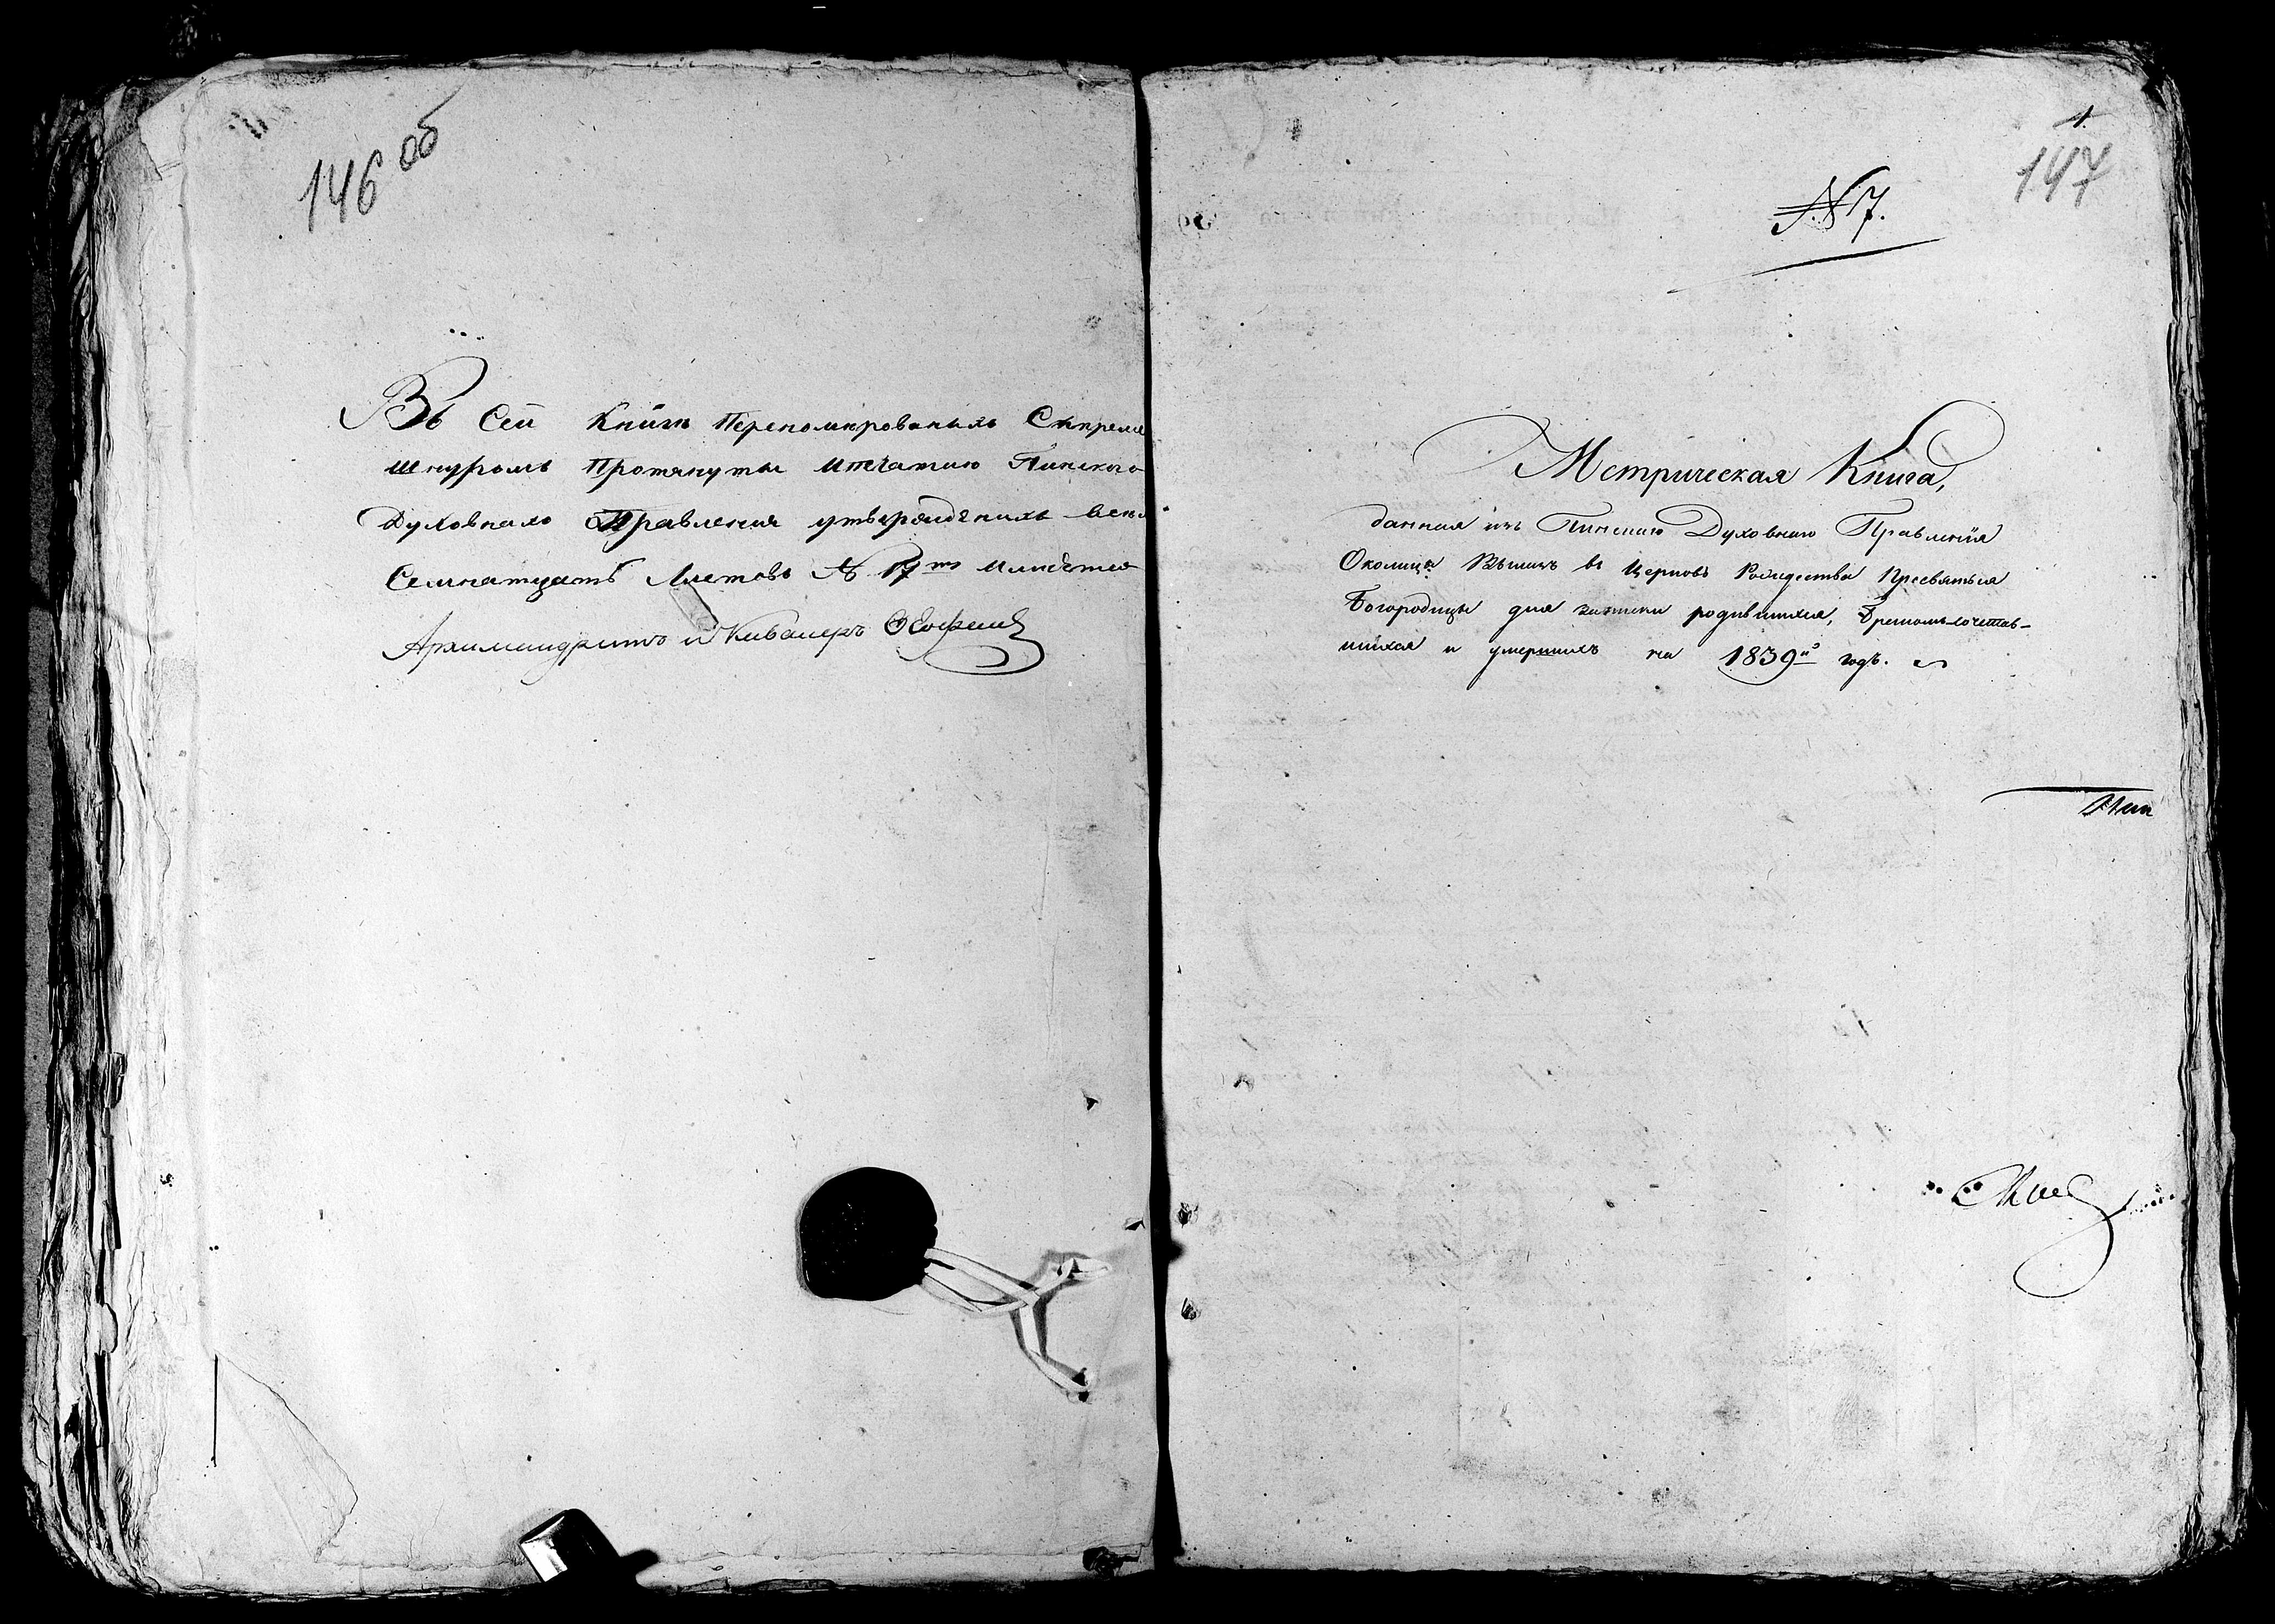 146 об
Въ Сей Книгѣ Переномированыхъ Скрепле
шнуромъ Протянуты ипечатию Пинского
Духовнаго Правления утвержденныхъ всего
Семнатцать Листовъ № 17тъ имѣется
Архимандритъ и Кавалеръ
1.
147
№ 7.
Метрическая Книга,
данная изъ Пинского Духовного Правленія
Околицы въ Церковь Рождества Пресвятыя
Богородицы для записки родившихся, Бракомъ сочетав-
шихся и умершихъ на 1839й годъ.